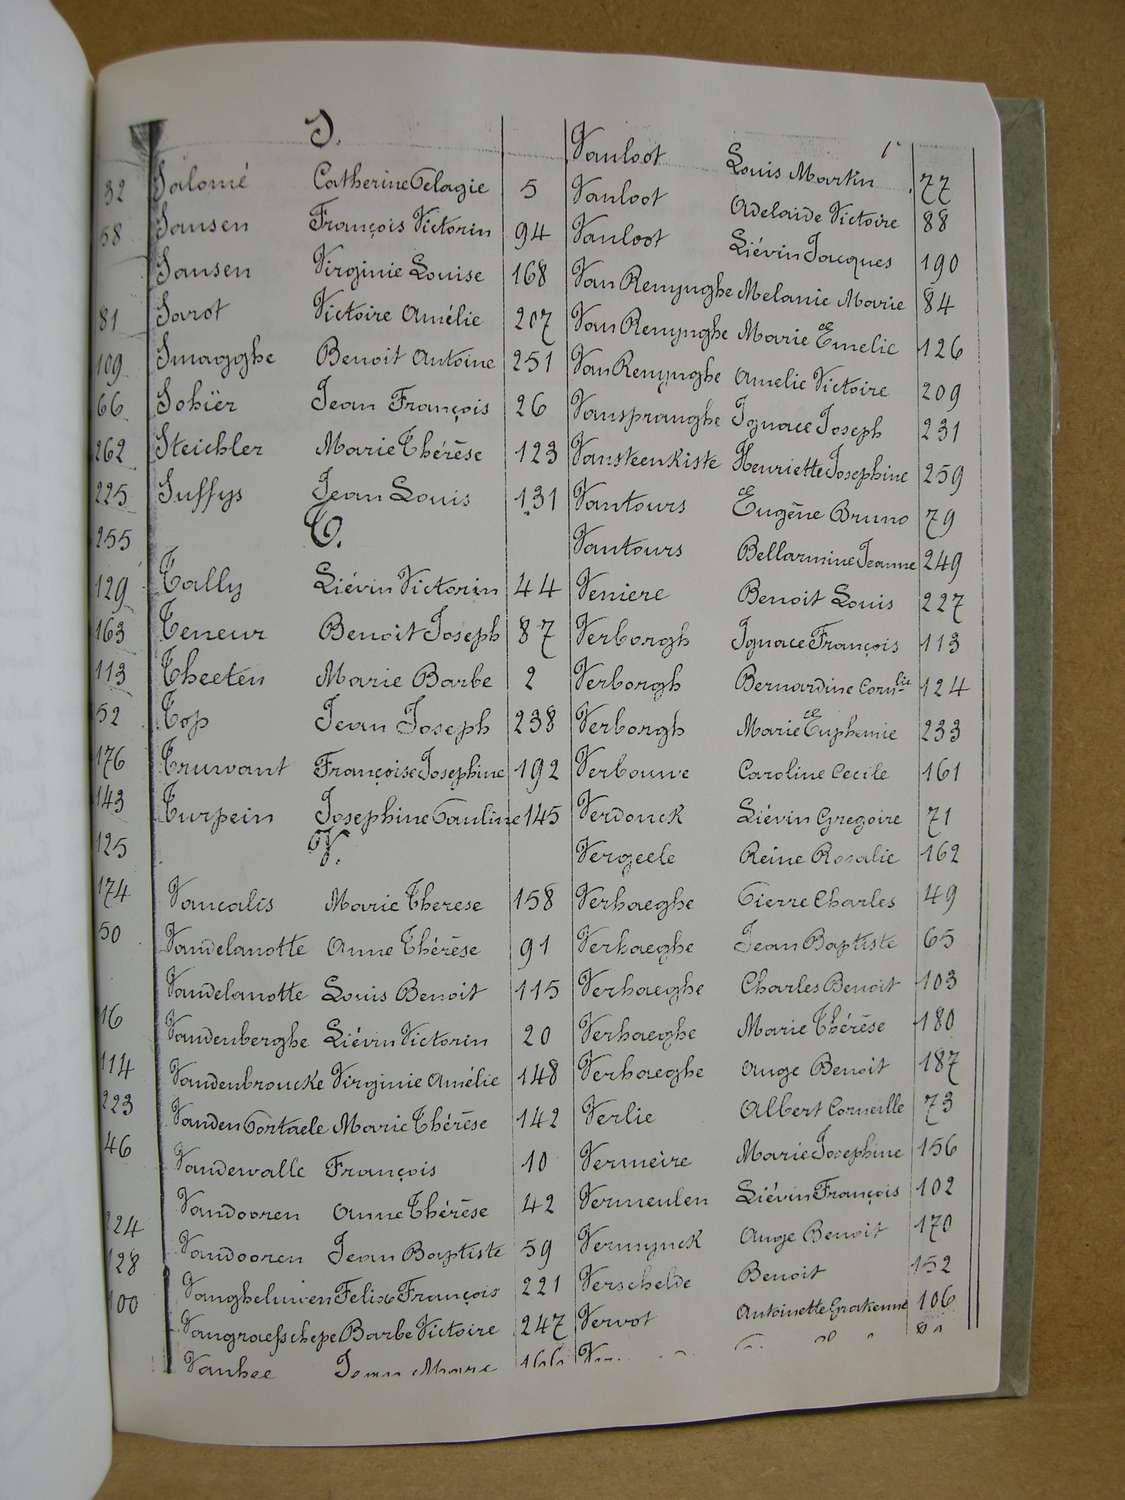 S.
Salomé Catherine Pelagie 5
Sansen François Victorin 94
Sansen Virginie Louise 168
Sarot Victoire Amélie 207
Smagghe Benoit Antoine 251
Sohier Jean François 26
Steichler Marie Thérèse 123
Suffys Jean Louis 131
T.
Tally Liévin Victorin 44
Teneur Benoit Joseph 87
Theeten Marie Barbe 2
Top Jean Joseph 238
Truwant Françoise Josephine 192
Turpein Josephine Pauline 145
V.
Vancalis Marie Therese 158
Vandelanotte Anne Thérèse 91
Vandelanotte Louis Benoit 115
Vandenberghe Liévin Victorin 20
Vandenbroucke Virginie Amélie 148
VandenPortaele Marie Thérèse 142
Vandewalle François 10
Vandooren Anne Thérèse 42
Vandooren Jean Baptiste 59
Vangheluwen Felix François 221
Vangraefschepe Barbe Victoire 247
Vanhee Jean Marie 166
Vanloot Louis Martin 77
Vanloot Adelaide Victoire 88
Vanloot Liévin Jacques 190
Van Remynghe Melanie Marie 84
Van Remynghe Marie Emelie 126
Van Remynghe Amelie Victoire 209
Vanspranghe Ignace Joseph 231
Vansteenkiste Henriette Josephine 259
Vantours Eugène Bruno 79
Vantours Bellarmine Jeanne 249
Veniere Benoit Louis 227
Verborgh Ignace François 113
Verborgh Bernardine Cornlie 124
Verborgh Marie Euphemie 233
Verbouwe Caroline Cecile 161
Verdonck Liévin Gregoire 71
Vergeele Reine Rosalie 162
Verhaeghe Pierre Charles 49
Verhaeghe Jean Baptiste 65
Verhaeghe Charles Benoit 103
Verhaeghe Marie Thérèse 180
Verhaeghe Ange Benoit 187
Verlie Albert Corneille 73
Vermeire Marie Josephine 156
Vermeulen Liévin François 102
Vermynck Ange Benoit 170
Verschelde Benoit 152
Vervot Antoinette 106
32
58
81
109
66
262
225
255
129
163
113
52
176
143
125
174
50
16
114
223
46
224
128
100